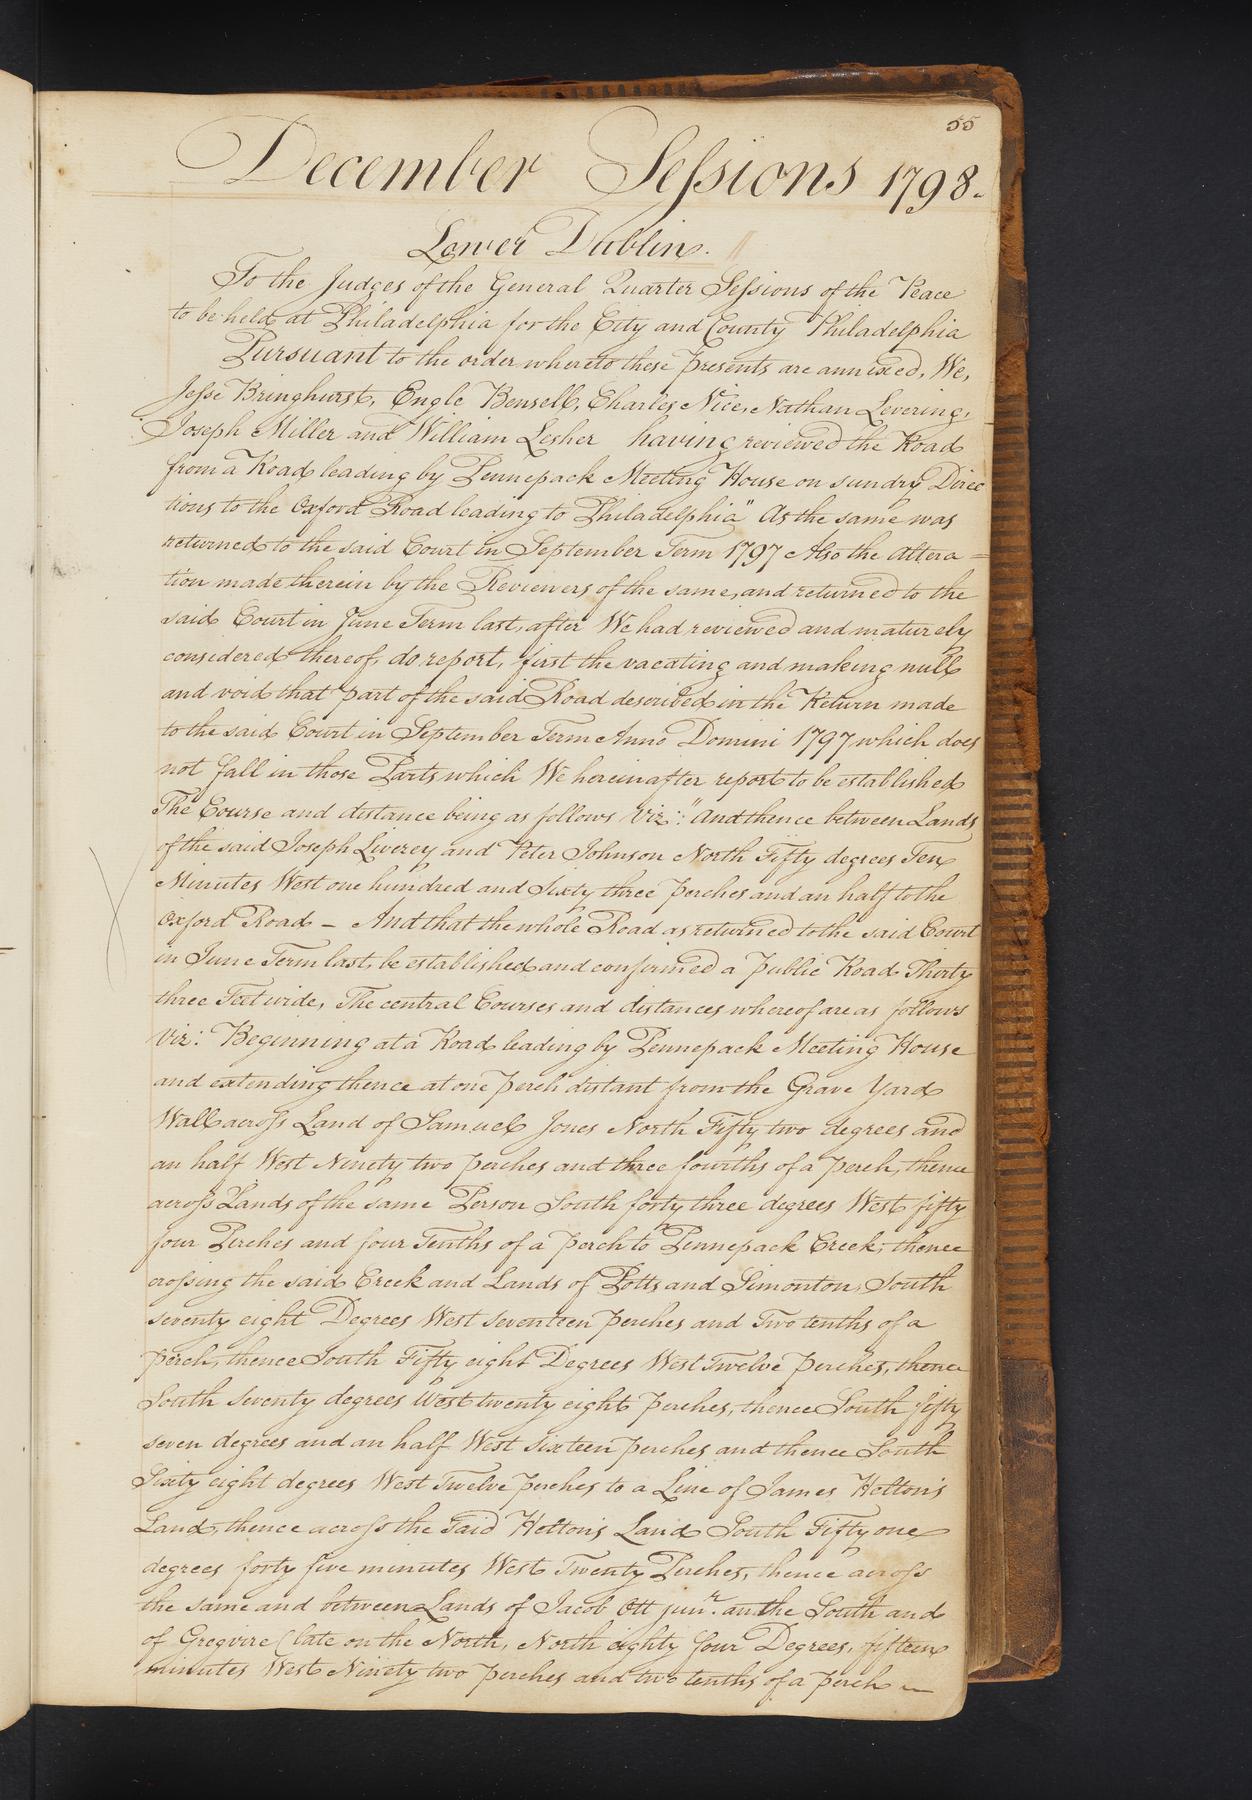 55
December Sessions 1798.
Lower Dublin.
To the Judges of the General Quarter Sessions of the Peace
to be held at Philadelphia for the City and County Philadelphia
Pursuant to the order whereto these presents are annexed, We,
Jesse Bringhurst, Engle Bensell, Charles Nice, Nathan Levering,
Joseph Miller and William Lesher having reviewed the Road
from a Road leading by Pennepack Meeting House on sundry Direc
tions to the Oxford Road leading to Philadelphia" As the same was
returned to the said Court in September Term 1797 Also the altera=
tion made therein by the Reviewers of the same, and returned to the
said Court in June Term last, after We had reviewed and maturely
considered thereof, do report, first the vacating and making null
and void that part of the said Road described in the Return made
to the said Court in September Term Anno Domini 1797 which does
not fall in those Parts which We hereinafter report to be established
The Course and distance being as follows Viz: "And thence between Lands
of the said Joseph Liverey and Peter Johnson North Fifty degrees Ten
Minutes West one hundred and Sixty three perches and an half to the
Oxford Road – And that the whole Road as returned to the said Court
in June Term last, be established and confirmed a public Road Thirty
three Feet wide, The central Courses and distances whereof are as follows
Viz: Beginning at a Road leading by Pennepack Meeting House
and extending thence at one perch distant from the Grave Yard
Wall across Land of Samuel Jones North Fifty two degrees and
an half West Ninety two perches and three fourths of a perch, thence
across Lands of the same Person South forty three degrees West fifty
four Perches and four Tenths of a perch to Pennepack Creek; thence
crossing the said Creek and Lands of Potts and Simonton, South
seventy eight Degrees West seventeen perches and Two tenths of a
perch, thence South Fifty eight Degrees West Twelve perches, thence
South seventy degrees West twenty eight perches, thence South fifty
seven degrees and an half West sixteen perches and thence South
Sixty eight degrees West Twelve perches to a Line of James Holton's
Land, thence across the said Holton's Land South Fifty one
degrees forty five minutes West Twenty Perches, thence across
the same and between Lands of Jacob Ott junr. on the South and
of Gregvire (late on the North, North eighty four Degrees, fifteen
minutes West Ninety two perches and two tenths of a perch